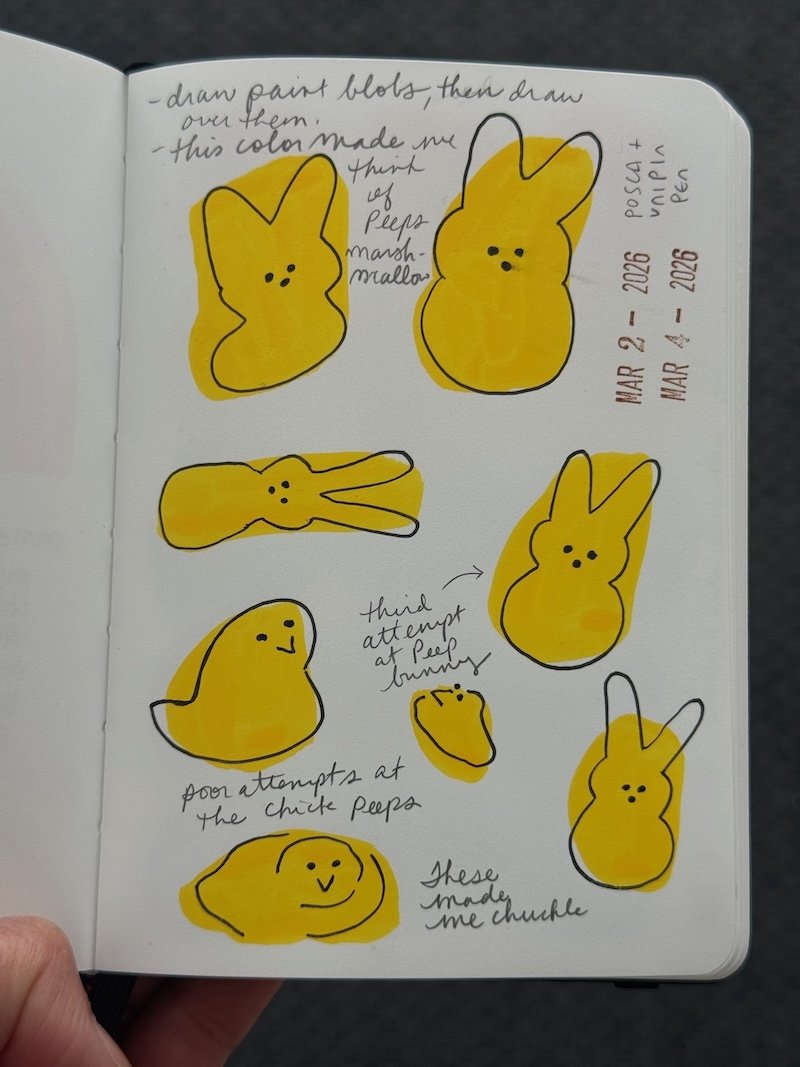 - draw paint blobs, then draw
over them.
- this color made me
think
of
Peeps
marsh-
mallow
POSCA +
UNIPIN
PEN
MAR 2 - 2026
MAR 4 - 2026
third
attempt
at Peep
bunny
poor attempts at
the chick Peeps
These
made
me chuckle